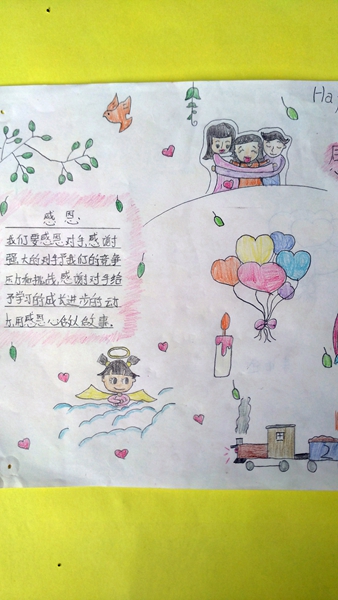 Ha
感恩.
我们要感恩对手,感谢
强大的对手予我们的竞争
压力和挑战,感谢对手给
予学习的成长进步的动
力,用感恩心的认故事.
2